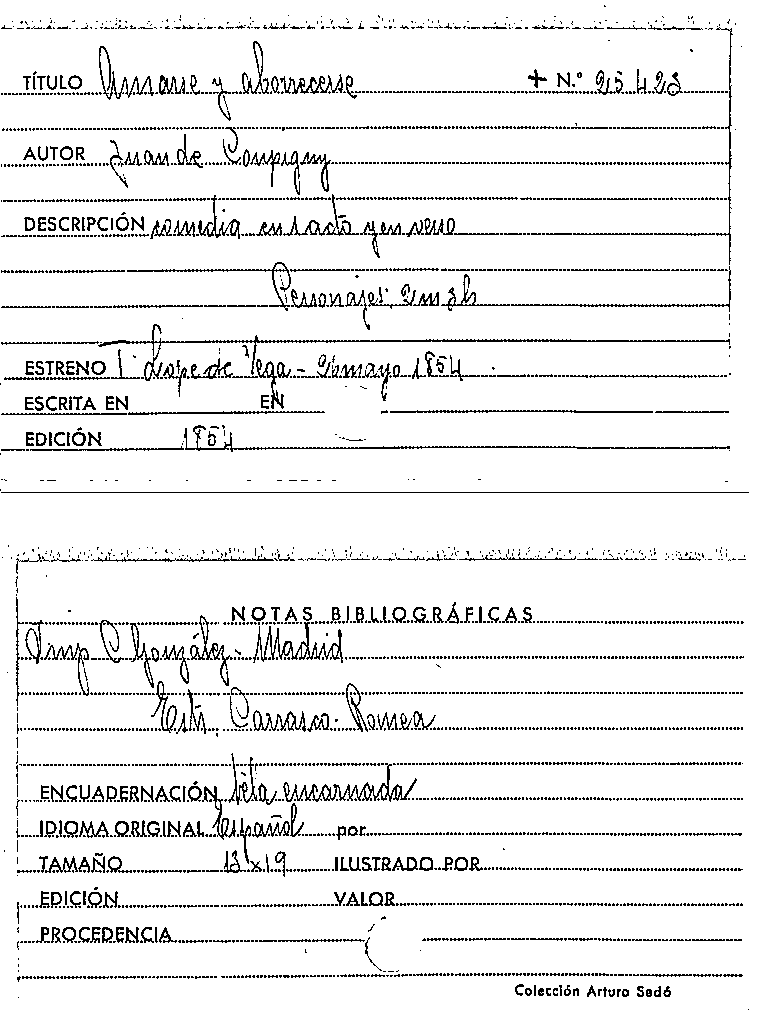 TÍTULO Amarse y aborrecerse + N.º 25428
AUTOR Juan de Coupigny
DESCRIPCIÓN comedia en 1 acto y en verso
Personajes: 2m 3h
ESTRENO Tº Lope de Vega - mayo 1854
ESCRITA EN EN
EDICIÓN 1854
NOTAS BIBLIOGRÁFICAS
Imp C González - Madrid
Estr. Carrasco - Romea
ENCUADERNACIÓN tela encarnada
IDIOMA ORIGINAL Español por
TAMAÑO 13x19 ILUSTRADO POR
EDICIÓN VALOR
PROCEDENCIA
Colección Arturo Sedó